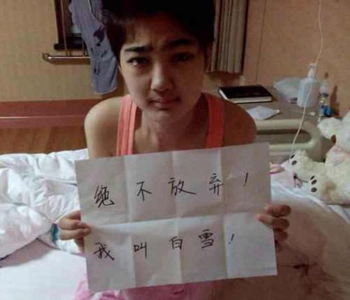 绝不放弃！
我叫白雪！